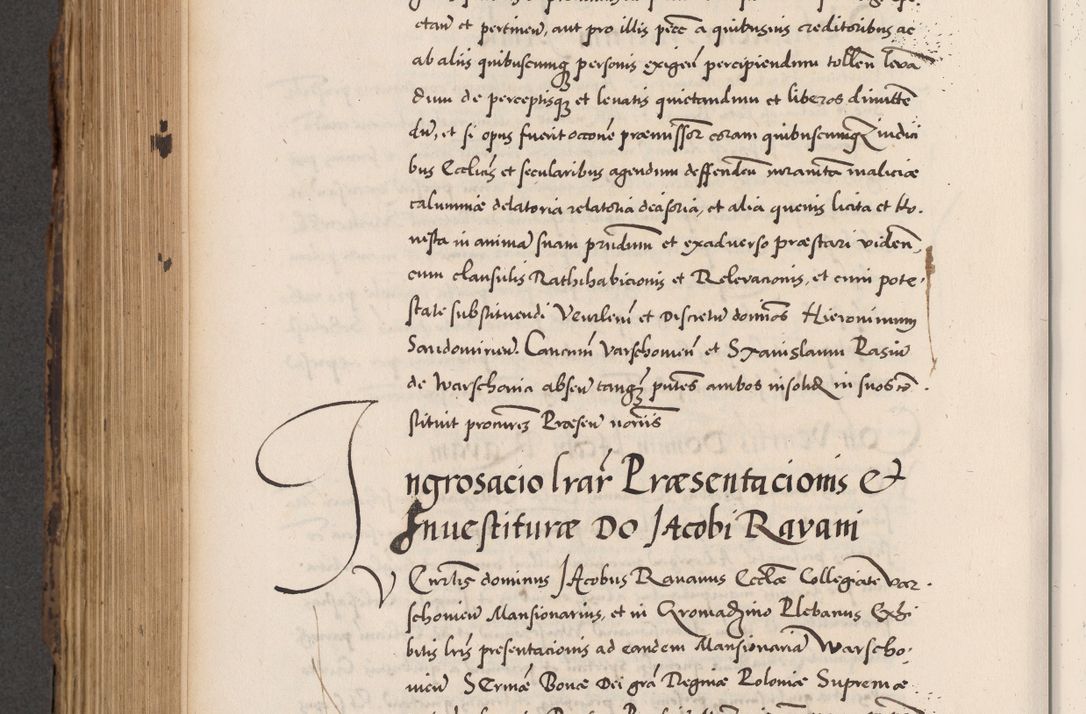 ctaũ et pertineũ, aut pro illis pẽcc a quibusuis creditoribus ac
ab aliis quibuscumqȝ personis exigeñ percipiendum tolleñ leuã
dum de perceptisqȝ et leuatis quietandum et liberos dimitte
dũ, et si opus fuerit occõne præmissor coram quibuscumqȝ iudici
bus Ecclicis et secularibus agendum deffendeñ iuramẽta maliciæ
calumniæ delatoria relatoria decisoria, et alia queuis licita et Ho-
nesta in animã suam prñdum et exaduerso præstari videñ,
cum clausulis Rathihabicionis et Releuacionis, et cum pote-
state substituendi Veñlem et Discretũ dominos Hieronimum
Sandomirieñ. Canconũ Varschouieñ et Stanislaum Rasiũ
de Warschauia abseñ tanqȝ pñtes ambos insolid in suos cõ-
stituit procurẽs Præseñ noriis
Ingrosacio lrar̃ Præsentacionis &
Inuestituræ DO JAcobi Ravani
VEnrlis dominus JAcobus Rauanus Ecclæ Collegiate var-
schouieñ Mansionarius, et in Gromadzino Plebanus Exhi-
bitis lris presentacionis ad eandem Mansionariã Warscho-
uieñ SErmæ Bonæ Dei grã Reginæ Poloniæ Supremæ